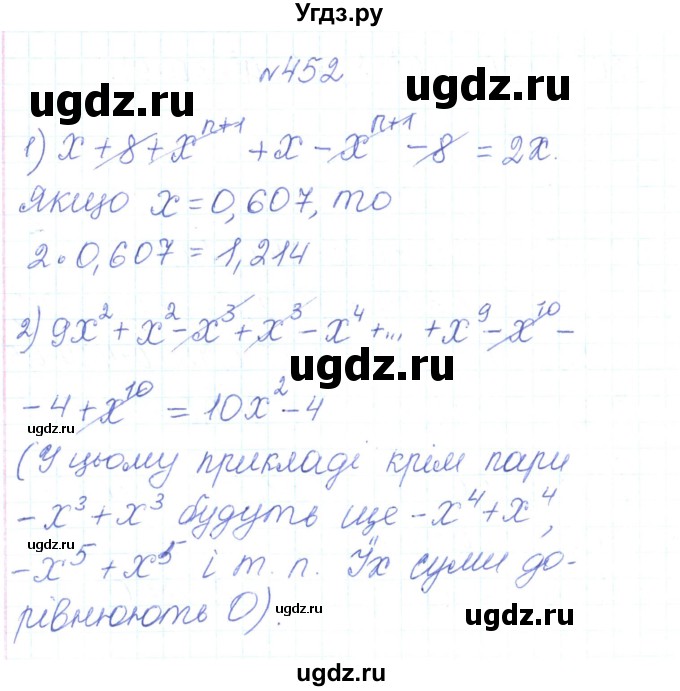 Угдз.ру
№452
ugdz.ru ugdz.ru
1) x + 8 + x^(n+1) + x - x^(n+1) - 8 = 2x.
Якщо x = 0,607, то
2 · 0,607 = 1,214
ugdz.ru
2) 9x² + x² - x³ + x³ - x⁴ + ... + x⁹ - x¹⁰ -
ugdz.ru
- 4 + x¹⁰ = 10x² - 4
ugdz.ru ugdz.ru
(У цьому прикладі крім пари
- x³ + x³ будуть ще - x⁴ + x⁴,
ugdz.ru
- x⁵ + x⁵ і т. п. Їх суми до-
ugdz.ru ugdz.ru
рівнюють 0).
ugdz.ru